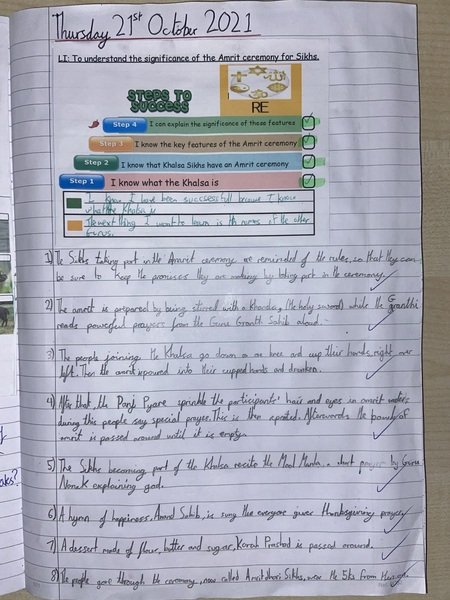 Thursday 21st October 2021
LI: To understand the significance of the Amrit ceremony for Sikhs.
STEPS TO
SUCCESS
RE
Step 4 I can explain the significance of these features
Step 3 I know the key features of the Amrit ceremony
Step 2 I know that Khalsa Sikhs have an Amrit ceremony
Step 1 I know what the Khalsa is
I know I have been successfull because I know
what the Khalsa is
The next thing I want to learn is the names of the other
Gurus.
1) The Sikhs taking part in the Amrit ceremony are reminded of the rules, so that they can
be sure to keep the promises they are making by taking part in the ceremony.
2) The amrit is prepared by being stirred with a Khanda, (the holy sword) while the Granthi
reads powerful prayers from the Guru Granth Sahib aloud.
3) The people joining the Khalsa go down on one knee and cup their hands, right over
left. Then the amrit is poured into their cupped hands and drunken.
4) After that, the Panj Pyare sprinkle the participants' hair and eyes in amrit
during this people say special prayer. This is then repeated. Afterwards the bowl of
amrit is passed around until it is empty.
5) The Sikhs becoming part of the Khalsa recite the Mool Mantra, a short prayer by Guru
Nanak explaining god.
6) A hymn of happiness, Anand Sahib, is sung then everyone gives thanksgiving prayer
7) A dessert made of flour, butter and sugar, Karah Prashad is passed around.
8) The people go through the ceremony, now called Amritdhari Sikhs, wear the 5ks from
aks?